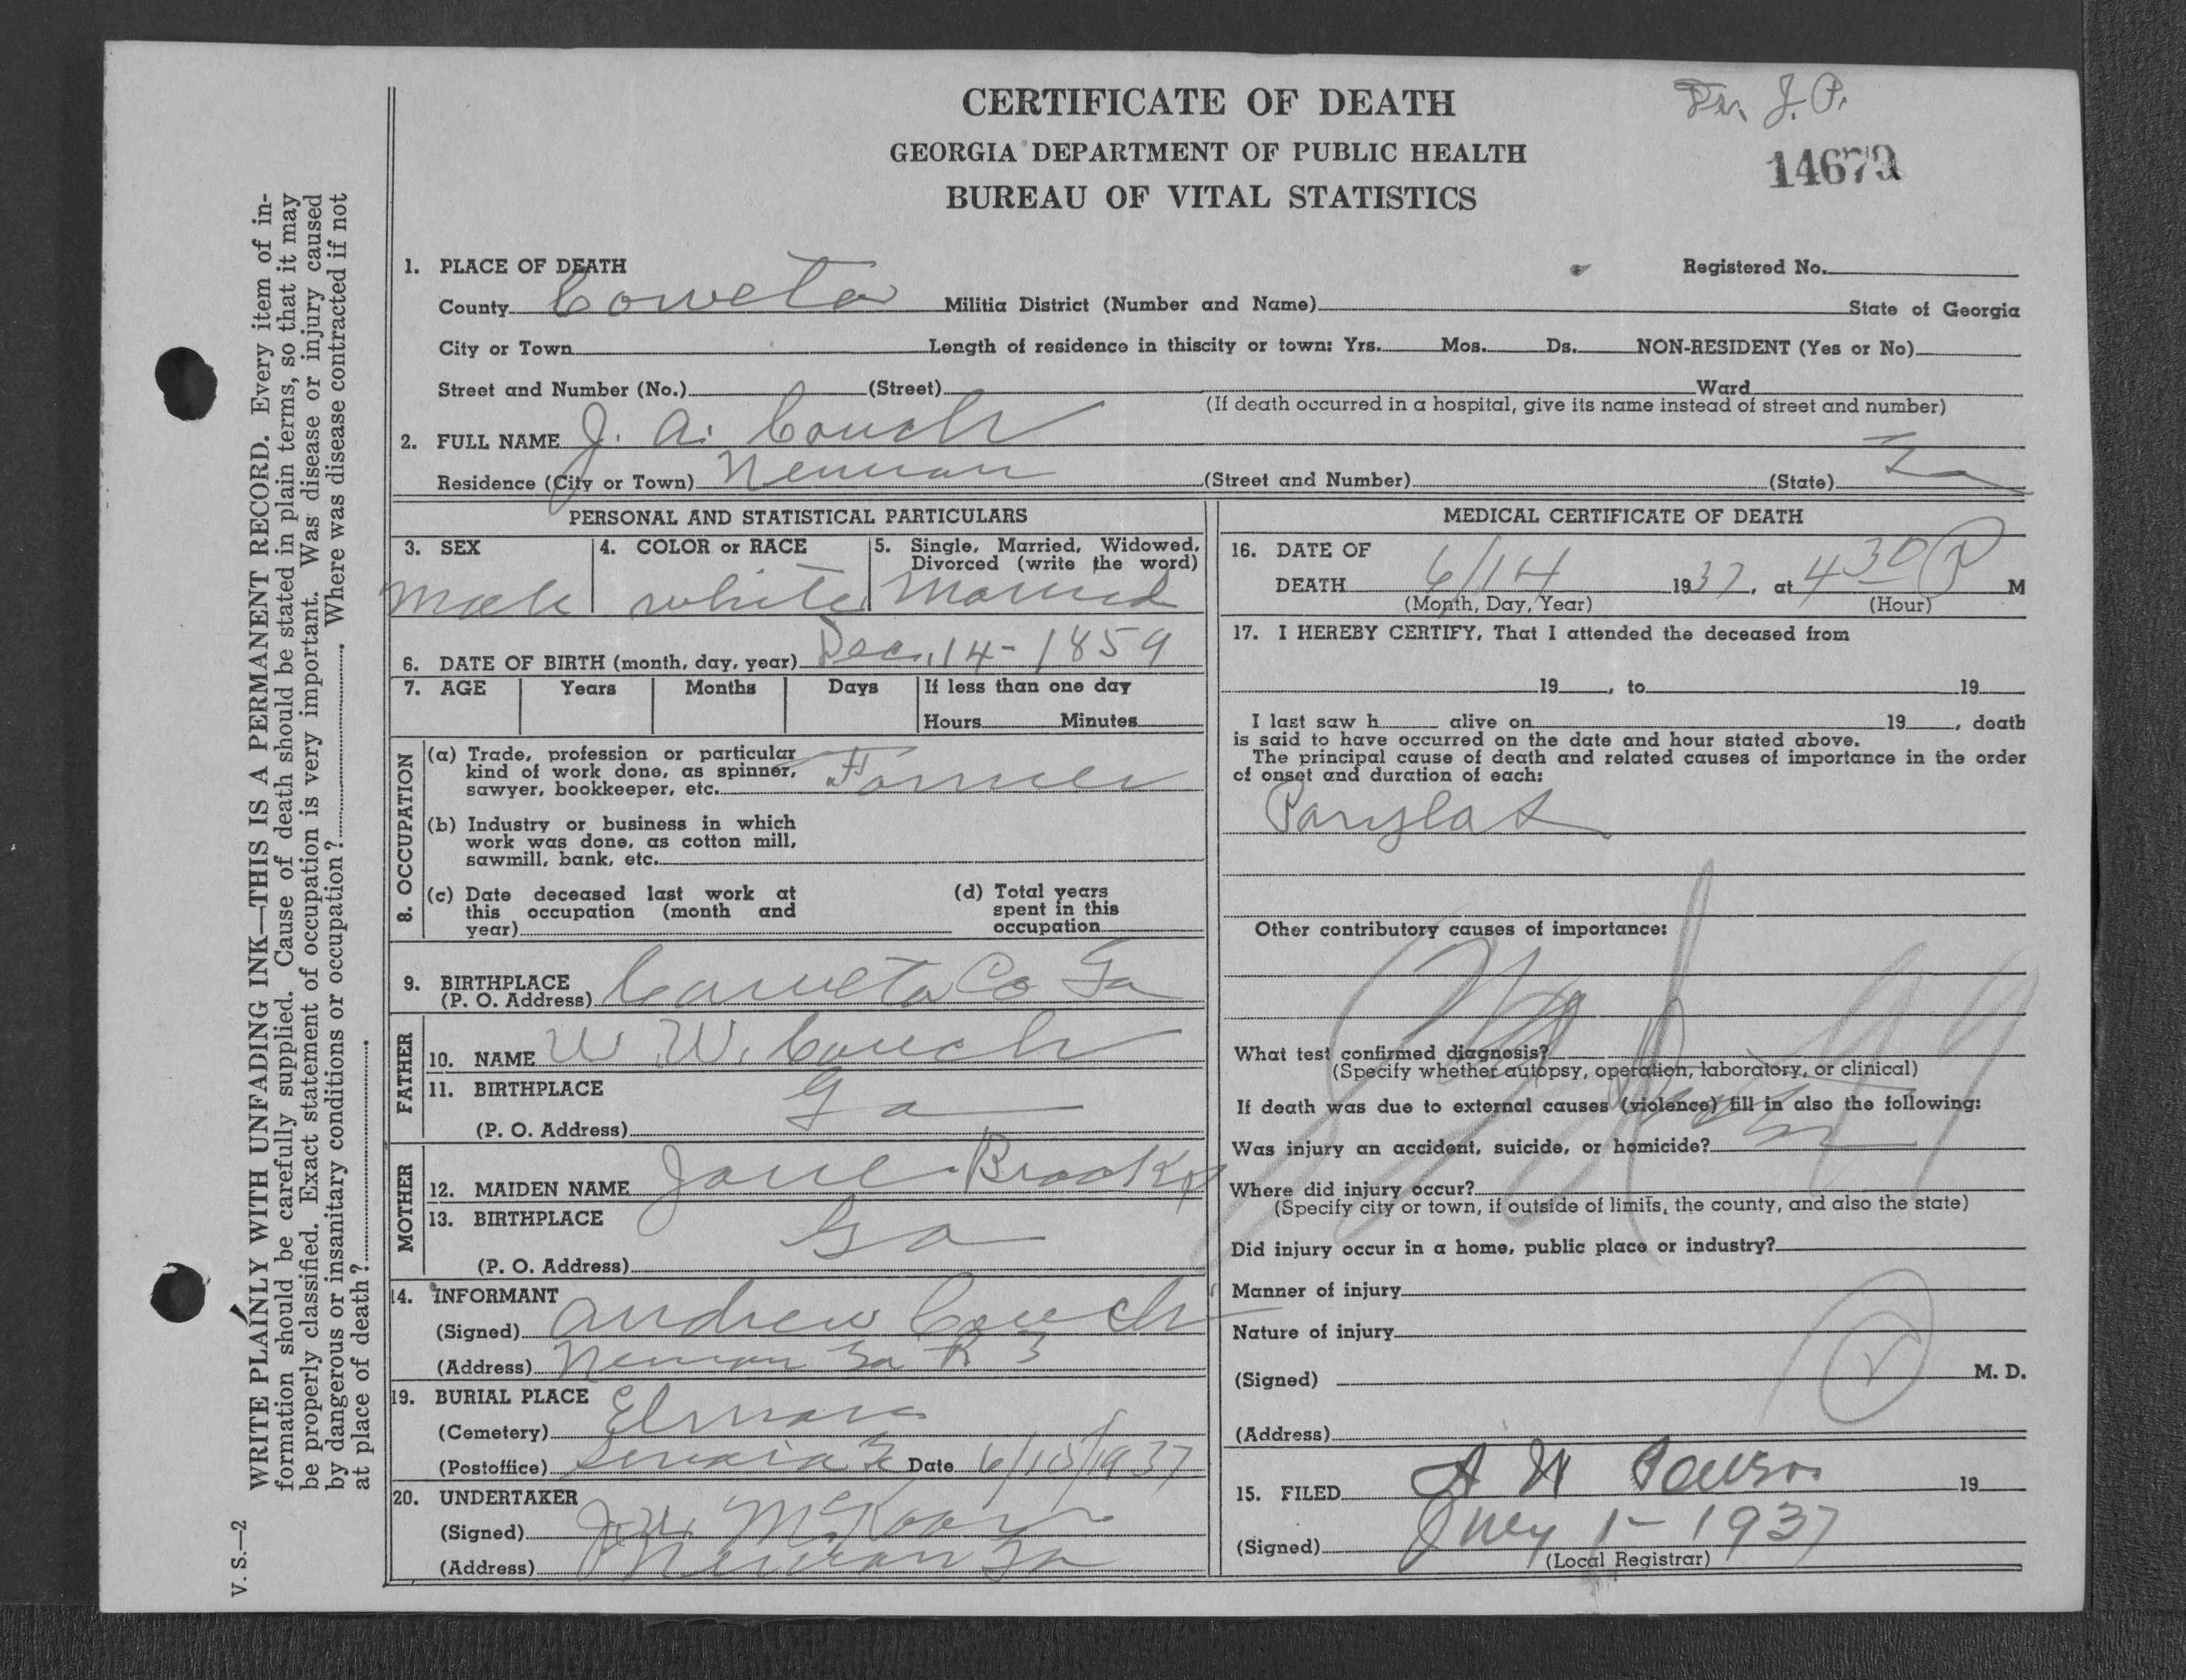 CERTIFICATE OF DEATH
GEORGIA DEPARTMENT OF PUBLIC HEALTH
BUREAU OF VITAL STATISTICS
J. P.
14679
1. PLACE OF DEATH
Registered No.
County Coweta Militia District (Number and Name) State of Georgia
City or Town Length of residence in thiscity or town: Yrs. Mos. Ds. NON-RESIDENT (Yes or No)
Street and Number (No.) (Street) Ward
(If death occurred in a hospital, give its name instead of street and number)
2. FULL NAME J. A. Couch
Residence (City or Town) Newnan (Street and Number) (State) Ga
PERSONAL AND STATISTICAL PARTICULARS
3. SEX 4. COLOR or RACE 5. Single, Married, Widowed,
Divorced (write the word)
Male white Married
6. DATE OF BIRTH (month, day, year) Dec. 14 - 1859
7. AGE Years Months Days If less than one day
Hours Minutes
8. OCCUPATION
(a) Trade, profession or particular
kind of work done, as spinner,
sawyer, bookkeeper, etc. Farmer
(b) Industry or business in which
work was done, as cotton mill,
sawmill, bank, etc.
(c) Date deceased last work at
this occupation (month and
year)
(d) Total years
spent in this
occupation
9. BIRTHPLACE
(P. O. Address) Coweta Co Ga
FATHER
10. NAME W. W. Couch
11. BIRTHPLACE Ga
(P. O. Address)
MOTHER
12. MAIDEN NAME Jane Brooks
13. BIRTHPLACE Ga
(P. O. Address)
14. INFORMANT
(Signed) Andrew Couch
(Address) Newnan Ga R 3
19. BURIAL PLACE
(Cemetery)
(Postoffice) Senoia Ga Date 6/15/1937
20. UNDERTAKER
(Signed) McKoon
(Address) Newnan Ga
MEDICAL CERTIFICATE OF DEATH
16. DATE OF
DEATH 6/14 1937, at 4 30 P M
(Month, Day, Year) (Hour)
17. I HEREBY CERTIFY, That I attended the deceased from
19 , to 19
I last saw h alive on 19 , death
is said to have occurred on the date and hour stated above.
The principal cause of death and related causes of importance in the order
of onset and duration of each:
Other contributory causes of importance:
What test confirmed diagnosis?
(Specify whether autopsy, operation, laboratory, or clinical)
If death was due to external causes (violence) fill in also the following:
Was injury an accident, suicide, or homicide?
Where did injury occur?
(Specify city or town, if outside of limits, the county, and also the state)
Did injury occur in a home, public place or industry?
Manner of injury
Nature of injury
(Signed) M. D.
(Address)
15. FILED A W 19
(Signed) 1 - 1937
(Local Registrar)
V. S.—2
WRITE PLAINLY WITH UNFADING INK—THIS IS A PERMANENT RECORD. Every item of in-
formation should be carefully supplied. Cause of death should be stated in plain terms, so that it may
be properly classified. Exact statement of occupation is very important. Was disease or injury caused
by dangerous or insanitary conditions or occupation? Where was disease contracted if not
at place of death?